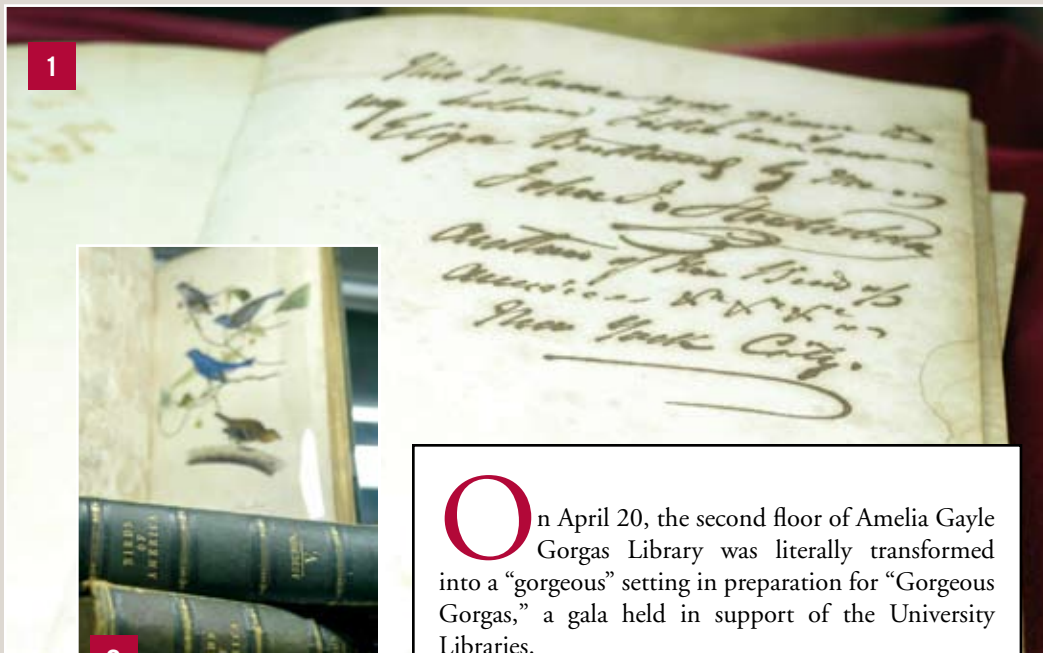 1
This Volume was given to
Eliza by me
John J. Audubon
Author of the Birds of
America &c &c &c
New York City.
BIRDS
OF
AMERICA
AUDUBON
V.
On April 20, the second floor of Amelia Gayle
Gorgas Library was literally transformed
into a “gorgeous” setting in preparation for “Gorgeous
Gorgas,” a gala held in support of the University
Libraries.